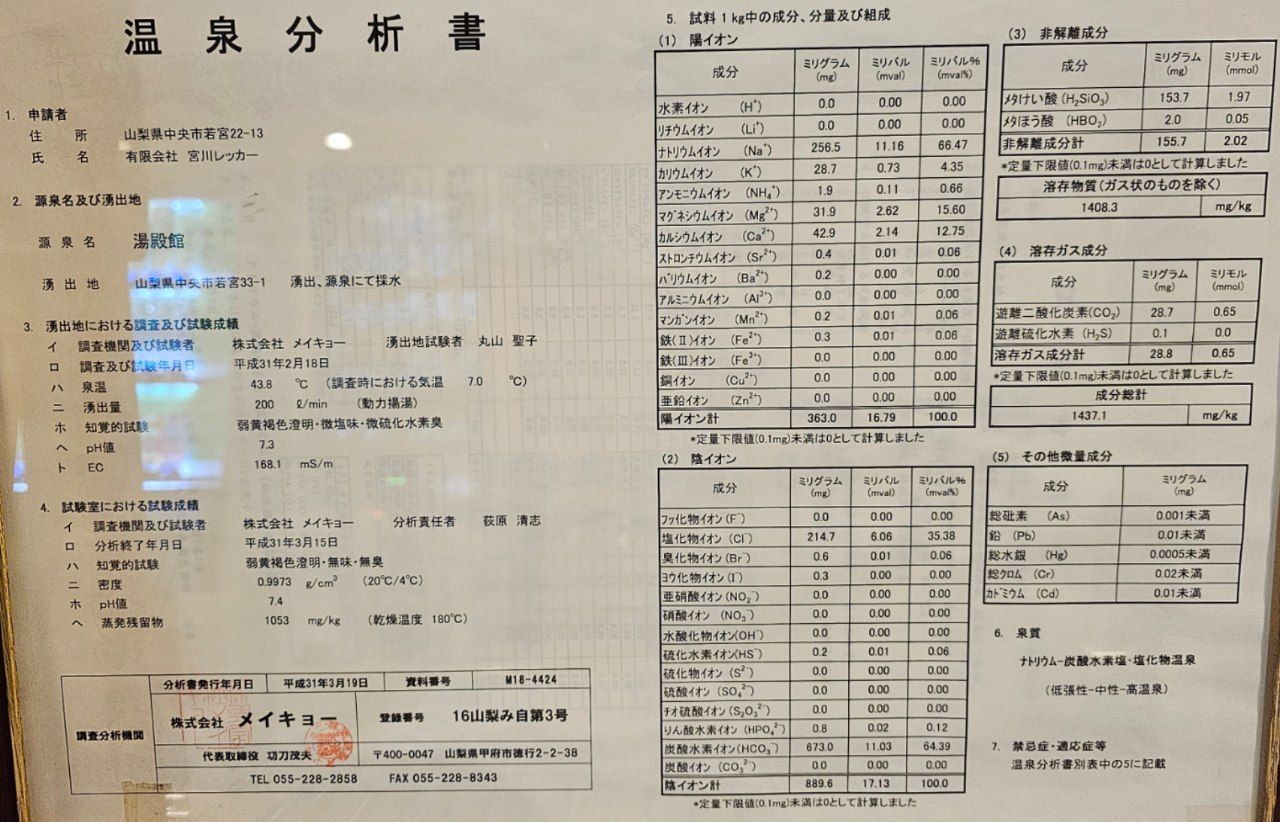 温泉分析書
1. 申請者
住所 山梨県中央市若宮22-13
氏名 有限会社 宮川レッカー
2. 源泉名及び湧出地
源泉名 湯殿館
湧出地 山梨県中央市若宮33-1 湧出、源泉にて採水
3. 湧出地における調査及び試験成績
イ 調査機関及び試験者 株式会社 メイキョー 湧出地試験者 丸山 聖子
ロ 調査及び試験年月日 平成31年2月18日
ハ 泉温 43.8 ℃ (調査時における気温 7.0 ℃)
ニ 湧出量 200 ℓ/min (動力揚湯)
ホ 知覚的試験 弱黄褐色澄明・微塩味・微硫化水素臭
ヘ pH値 7.3
ト EC 168.1 mS/m
4. 試験室における試験成績
イ 調査機関及び試験者 株式会社 メイキョー 分析責任者 荻原 清志
ロ 分析終了年月日 平成31年3月15日
ハ 知覚的試験 弱黄褐色澄明・無味・無臭
ニ 密度 0.9973 g/cm³ (20℃/4℃)
ホ pH値 7.4
ヘ 蒸発残留物 1053 mg/kg (乾燥温度 180℃)
調査分析機関
分析書発行年月日 平成31年3月19日 資料番号 M18-4424
株式会社 メイキョー 登録番号 16山梨み自第3号
代表取締役 功刀茂夫 〒400-0047 山梨県甲府市徳行2-2-38
TEL 055-228-2858 FAX 055-228-8343
5. 試料1kg中の成分、分量及び組成
(1) 陽イオン
成分 ミリグラム(mg) ミリバル(mval) ミリバル%(mval%)
水素イオン (H⁺) 0.0 0.00 0.00
リチウムイオン (Li⁺) 0.0 0.00 0.00
ナトリウムイオン (Na⁺) 256.5 11.16 66.47
カリウムイオン (K⁺) 28.7 0.73 4.35
アンモニウムイオン (NH₄⁺) 1.9 0.11 0.66
マグネシウムイオン (Mg²⁺) 31.9 2.62 15.60
カルシウムイオン (Ca²⁺) 42.9 2.14 12.75
ストロンチウムイオン (Sr²⁺) 0.4 0.01 0.06
バリウムイオン (Ba²⁺) 0.2 0.00 0.00
アルミニウムイオン (Al³⁺) 0.0 0.00 0.00
マンガンイオン (Mn²⁺) 0.2 0.01 0.06
鉄(Ⅱ)イオン (Fe²⁺) 0.3 0.01 0.06
鉄(Ⅲ)イオン (Fe³⁺) 0.0 0.00 0.00
銅イオン (Cu²⁺) 0.0 0.00 0.00
亜鉛イオン (Zn²⁺) 0.0 0.00 0.00
陽イオン計 363.0 16.79 100.0
*定量下限値(0.1mg)未満は0として計算しました
(2) 陰イオン
成分 ミリグラム(mg) ミリバル(mval) ミリバル%(mval%)
フッ化物イオン (F⁻) 0.0 0.00 0.00
塩化物イオン (Cl⁻) 214.7 6.06 35.38
臭化物イオン (Br⁻) 0.6 0.01 0.06
ヨウ化物イオン (I⁻) 0.3 0.00 0.00
亜硝酸イオン (NO₂⁻) 0.0 0.00 0.00
硝酸イオン (NO₃⁻) 0.0 0.00 0.00
水酸化物イオン(OH⁻) 0.0 0.00 0.00
硫化水素イオン(HS⁻) 0.2 0.01 0.06
硫化物イオン (S²⁻) 0.0 0.00 0.00
硫酸イオン (SO₄²⁻) 0.0 0.00 0.00
チオ硫酸イオン (S₂O₃²⁻) 0.0 0.00 0.00
りん酸水素イオン (HPO₄²⁻) 0.8 0.02 0.12
炭酸水素イオン(HCO₃⁻) 673.0 11.03 64.39
炭酸イオン (CO₃²⁻) 0.0 0.00 0.00
陰イオン計 889.6 17.13 100.0
*定量下限値(0.1mg)未満は0として計算しました
(3) 非解離成分
成分 ミリグラム(mg) ミリモル(mmol)
メタけい酸 (H₂SiO₃) 153.7 1.97
メタほう酸 (HBO₂) 2.0 0.05
非解離成分計 155.7 2.02
*定量下限値(0.1mg)未満は0として計算しました
溶存物質(ガス状のものを除く)
1408.3 mg/kg
(4) 溶存ガス成分
成分 ミリグラム(mg) ミリモル(mmol)
遊離二酸化炭素(CO₂) 28.7 0.65
遊離硫化水素 (H₂S) 0.1 0.0
溶存ガス成分計 28.8 0.65
*定量下限値(0.1mg)未満は0として計算しました
成分総計
1437.1 mg/kg
(5) その他微量成分
成分 ミリグラム(mg)
総砒素 (As) 0.001未満
鉛 (Pb) 0.01未満
総水銀 (Hg) 0.0005未満
総クロム (Cr) 0.02未満
カドミウム (Cd) 0.01未満
6. 泉質
ナトリウム-炭酸水素塩・塩化物温泉
(低張性-中性-高温泉)
7. 禁忌症・適応症等
温泉分析書別表中の5に記載